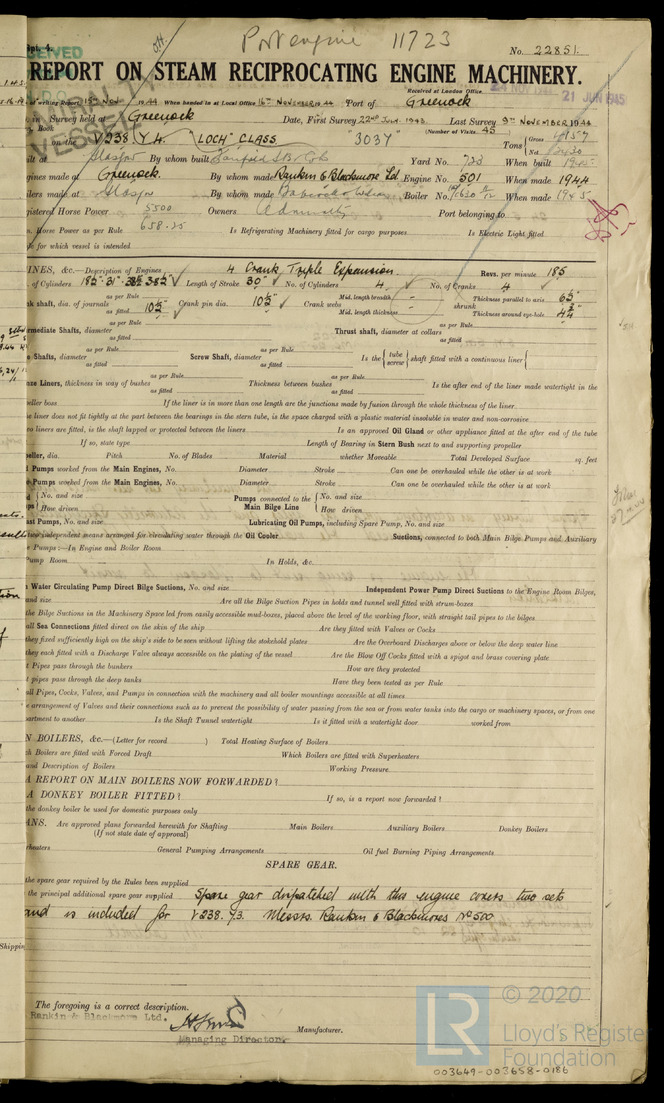 Rpt. 4.
Port engine 11723
No. 22851
REPORT ON STEAM RECIPROCATING ENGINE MACHINERY.
Received at London Office
21 JUN 1945
of writing Report 15th Nov 1944 When handed in at Local Office 16th NOVEMBER 1944 Port of Greenock
in Survey held at Greenock Date, First Survey 22nd July 1943 Last Survey 9th NOVEMBER 1944
Book (Number of Visits 45
on the V238 Y4. "LOCH" CLASS "3037" Tons Gross Net
built at Glasgow By whom built Yard No. 723 When built 1945
Engines made at Greenock By whom made Rankin & Blackmore Ltd Engine No. 501 When made 1944
Boilers made at Glasgow By whom made Babcock & Wilcox Boiler No. When made 1945
Registered Horse Power 5500 Owners Admiralty Port belonging to
Horse Power as per Rule 658.25 Is Refrigerating Machinery fitted for cargo purposes Is Electric Light fitted
for which vessel is intended
ENGINES, &c.—Description of Engines 4 Crank Triple Expansion Revs. per minute 185
of Cylinders 18½" 31" 38½" 38½" Length of Stroke 30" No. of Cylinders 4 No. of Cranks 4
shaft, dia. of journals as per Rule as fitted 10½" Crank pin dia. 10½" Crank webs Mid. length breadth Mid. length thickness shrunk Thickness parallel to axis 6½" Thickness around eye-hole 4¾"
Intermediate Shafts, diameter as per Rule as fitted Thrust shaft, diameter at collars as per Rule as fitted
Shafts, diameter as per Rule as fitted Screw Shaft, diameter as per Rule as fitted Is the { tube screw } shaft fitted with a continuous liner {
Liners, thickness in way of bushes as per Rule as fitted Thickness between bushes as per Rule as fitted Is the after end of the liner made watertight in the
propeller boss If the liner is in more than one length are the junctions made by fusion through the whole thickness of the liner
liner does not fit tightly at the part between the bearings in the stern tube, is the space charged with a plastic material insoluble in water and non-corrosive
liners are fitted, is the shaft lapped or protected between the liners Is an approved Oil Gland or other appliance fitted at the after end of the tube
If so, state type Length of Bearing in Stern Bush next to and supporting propeller
Propeller, dia. Pitch No. of Blades Material whether Moveable Total Developed Surface sq. feet
Pumps worked from the Main Engines, No. Diameter Stroke Can one be overhauled while the other is at work
Pumps worked from the Main Engines, No. Diameter Stroke Can one be overhauled while the other is at work
{ No. and size How driven Pumps connected to the Main Bilge Line { No. and size How driven
Pumps, No. and size Lubricating Oil Pumps, including Spare Pump, No. and size
two independent means arranged for circulating water through the Oil Cooler Suctions, connected to both Main Bilge Pumps and Auxiliary
Pumps:—In Engine and Boiler Room
Pump Room In Holds, &c.
Water Circulating Pump Direct Bilge Suctions, No. and size Independent Power Pump Direct Suctions to the Engine Room Bilges,
and size Are all the Bilge Suction Pipes in holds and tunnel well fitted with strum-boxes
the Bilge Suctions in the Machinery Space led from easily accessible mud-boxes, placed above the level of the working floor, with straight tail pipes to the bilges
all Sea Connections fitted direct on the skin of the ship Are they fitted with Valves or Cocks
they fixed sufficiently high on the ship's side to be seen without lifting the stokehold plates Are the Overboard Discharges above or below the deep water line
they each fitted with a Discharge Valve always accessible on the plating of the vessel Are the Blow Off Cocks fitted with a spigot and brass covering plate
Pipes pass through the bunkers How are they protected
pipes pass through the deep tanks Have they been tested as per Rule
all Pipes, Cocks, Valves, and Pumps in connection with the machinery and all boiler mountings accessible at all times
arrangement of Valves and their connections such as to prevent the possibility of water passing from the sea or from water tanks into the cargo or machinery spaces, or from one
compartment to another Is the Shaft Tunnel watertight Is it fitted with a watertight door worked from
BOILERS, &c.—(Letter for record ) Total Heating Surface of Boilers
Boilers are fitted with Forced Draft Which Boilers are fitted with Superheaters
and Description of Boilers Working Pressure
A REPORT ON MAIN BOILERS NOW FORWARDED?
A DONKEY BOILER FITTED? If so, is a report now forwarded?
the donkey boiler be used for domestic purposes only
PLANS. Are approved plans forwarded herewith for Shafting Main Boilers Auxiliary Boilers Donkey Boilers
(If not state date of approval)
General Pumping Arrangements Oil fuel Burning Piping Arrangements
SPARE GEAR.
the spare gear required by the Rules been supplied
the principal additional spare gear supplied Spare gear dispatched with this engine covers two sets
and is included for V238. Y3. Messrs. Rankin & Blackmores No 500
The foregoing is a correct description.
Rankin & Blackmore Ltd.
Manufacturer.
Managing Director
LR © 2020
Lloyd's Register
Foundation
003649-003658-0186